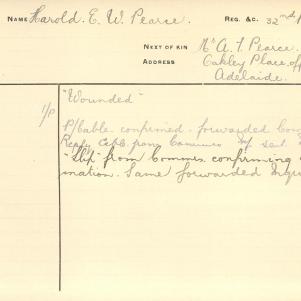 NAME Harold. E. W. Pearce. REG. &C. 32nd
NEXT OF KIN Mr A. T. Pearce.
ADDRESS Oakley Place, off
Adelaide.
"Wounded"
1/P P/Cable confirmed. forwarded
Reply Cable from Commrs sent
"slip" from Commrs. confirming
mation. Same forwarded Inqu